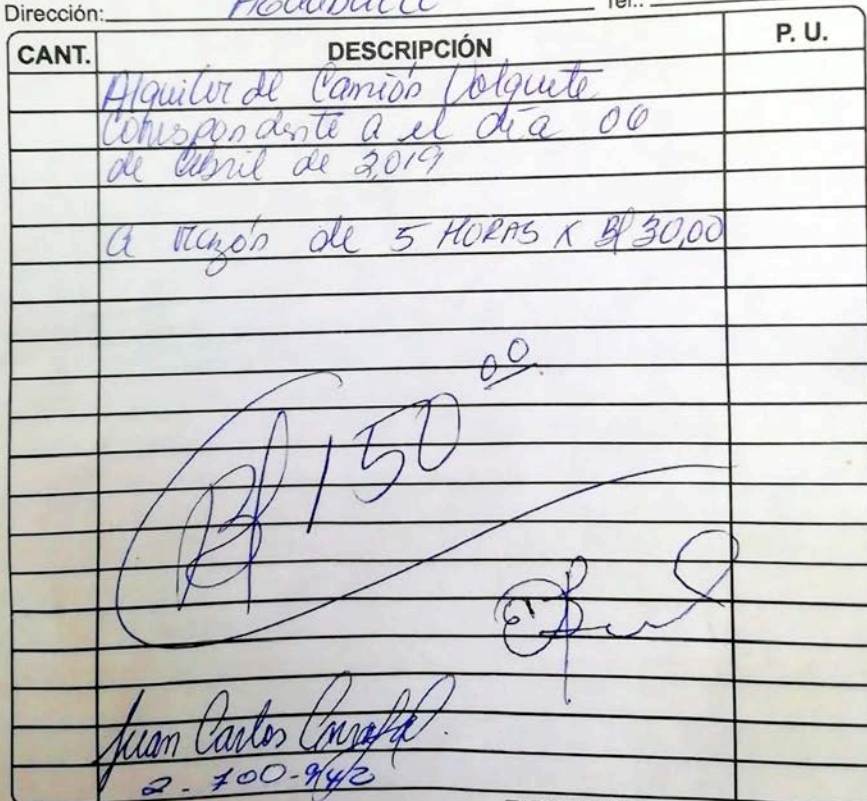 Dirección: Tel.:
CANT. DESCRIPCIÓN P. U.
Alquiler de Camión Volquete
Correspondiente a el día 06
de abril de 2,019
a razón de 5 HORAS X B/ 30,00
B/ 150 00
Juan Carlos